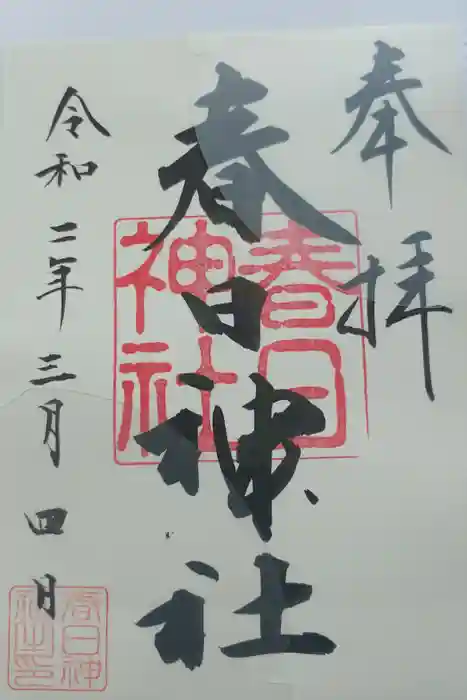 奉拝
春日神社
春日神社
令和二年三月四月
春日神社之印